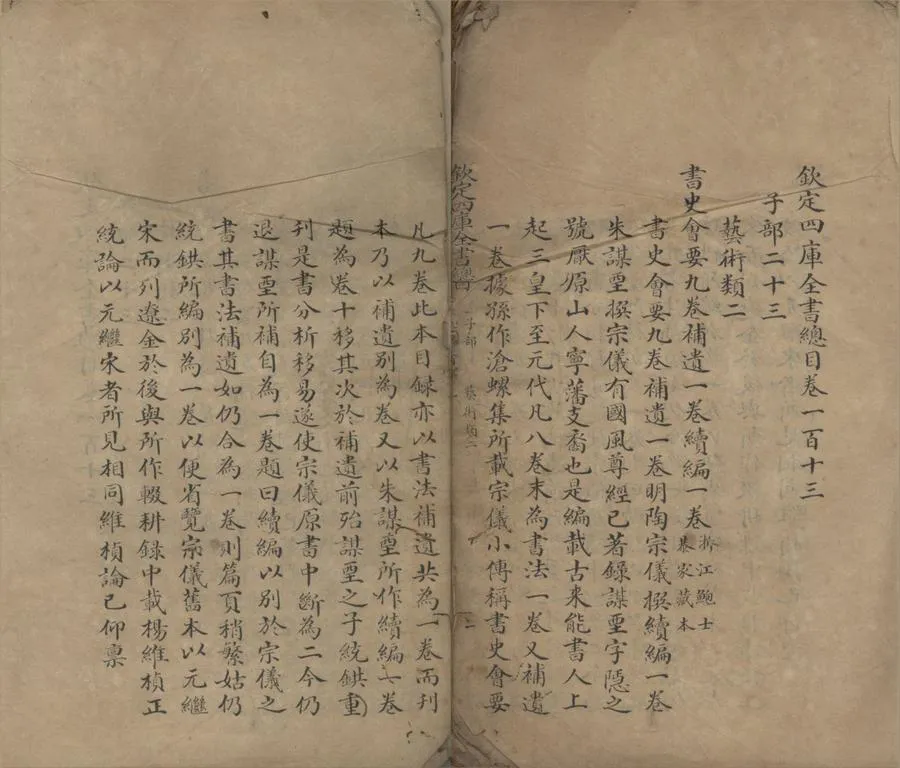 欽定四庫全書總目卷一百十三
子部二十三
藝術類二
書史會要九卷補遺一卷續編一卷浙江鮑士
恭家藏本
書史會要九卷補遺一卷明陶宗儀撰續編一卷
朱謀垔撰宗儀有國風尊經已著錄謀垔字隱之
號厭原山人寧藩支裔也是編載古来能書人上
起三皇下至元代凡八卷末為書法一卷又補遺
一卷據孫作滄螺集所載宗儀小傳稱書史會要
欽定四庫全書總目
子部 藝術類二
一
凡九卷此本目録亦以書法補遺共為一卷而刊
本乃以補遺别為卷又以朱謀垔所作續編一卷
題為卷十移其次於補遺前殆謀垔之子統鉷重
刊是書分析移易遂使宗儀原書中斷為二今仍
退謀垔所補自為一卷題曰續編以别於宗儀之
書其書法補遺如仍合為一卷則篇頁稍繁姑仍
統鉷所編别為一卷以便省覽宗儀舊本以元繼
宋而列遼金於後與所作輟耕録中載楊維楨正
統論以元繼宋者所見相同維楨論已仰稟